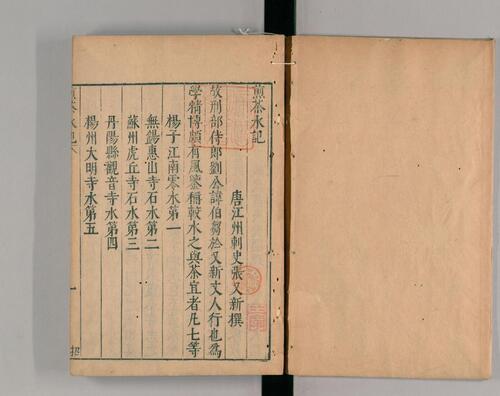 煎茶水記
唐江州刺史張又新撰
故刑部侍郎劉公諱伯芻於又新丈人行也為
學精博頗有風鑒稱較水之與茶宜者凡七等
楊子江南零水第一
無錫惠山寺石水第二
蘇州虎丘寺石水第三
丹陽縣觀音寺水第四
楊州大明寺水第五
煎茶水記
一